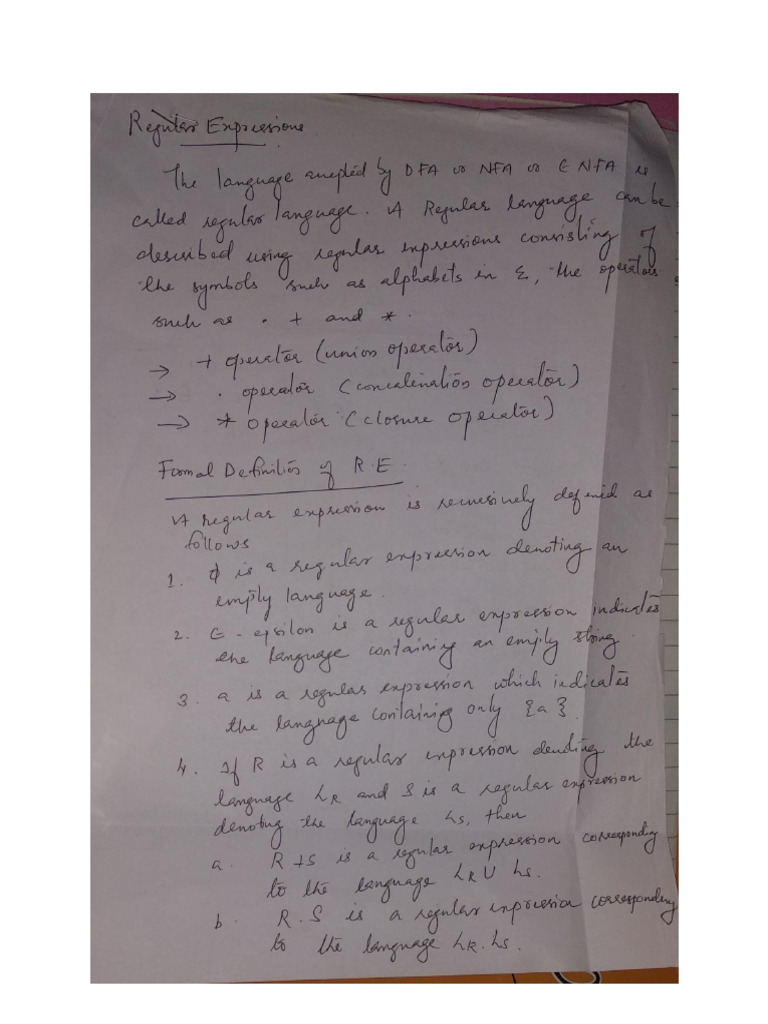 Regular Expressions
The language accepted by DFA or NFA or ϵ NFA is
called regular language. A Regular language can be
described using regular expressions consisting of
the symbols such as alphabets in Σ, the operators
such as . + and *.
→ + operator (union operator)
→ . operator (concatenation operator)
→ * operator (closure operator)
Formal Definition of R.E.
A regular expression is recursively defined as
follows
1. ϕ is a regular expression denoting an
empty language.
2. ϵ - epsilon is a regular expression indicates
the language containing an empty string.
3. a is a regular expression which indicates
the language containing only {a}.
4. If R is a regular expression denoting the
language LR and S is a regular expression
denoting the language LS, then
a. R+S is a regular expression corresponding
to the language LR U LS.
b. R.S is a regular expression corresponding
to the language LR.LS.